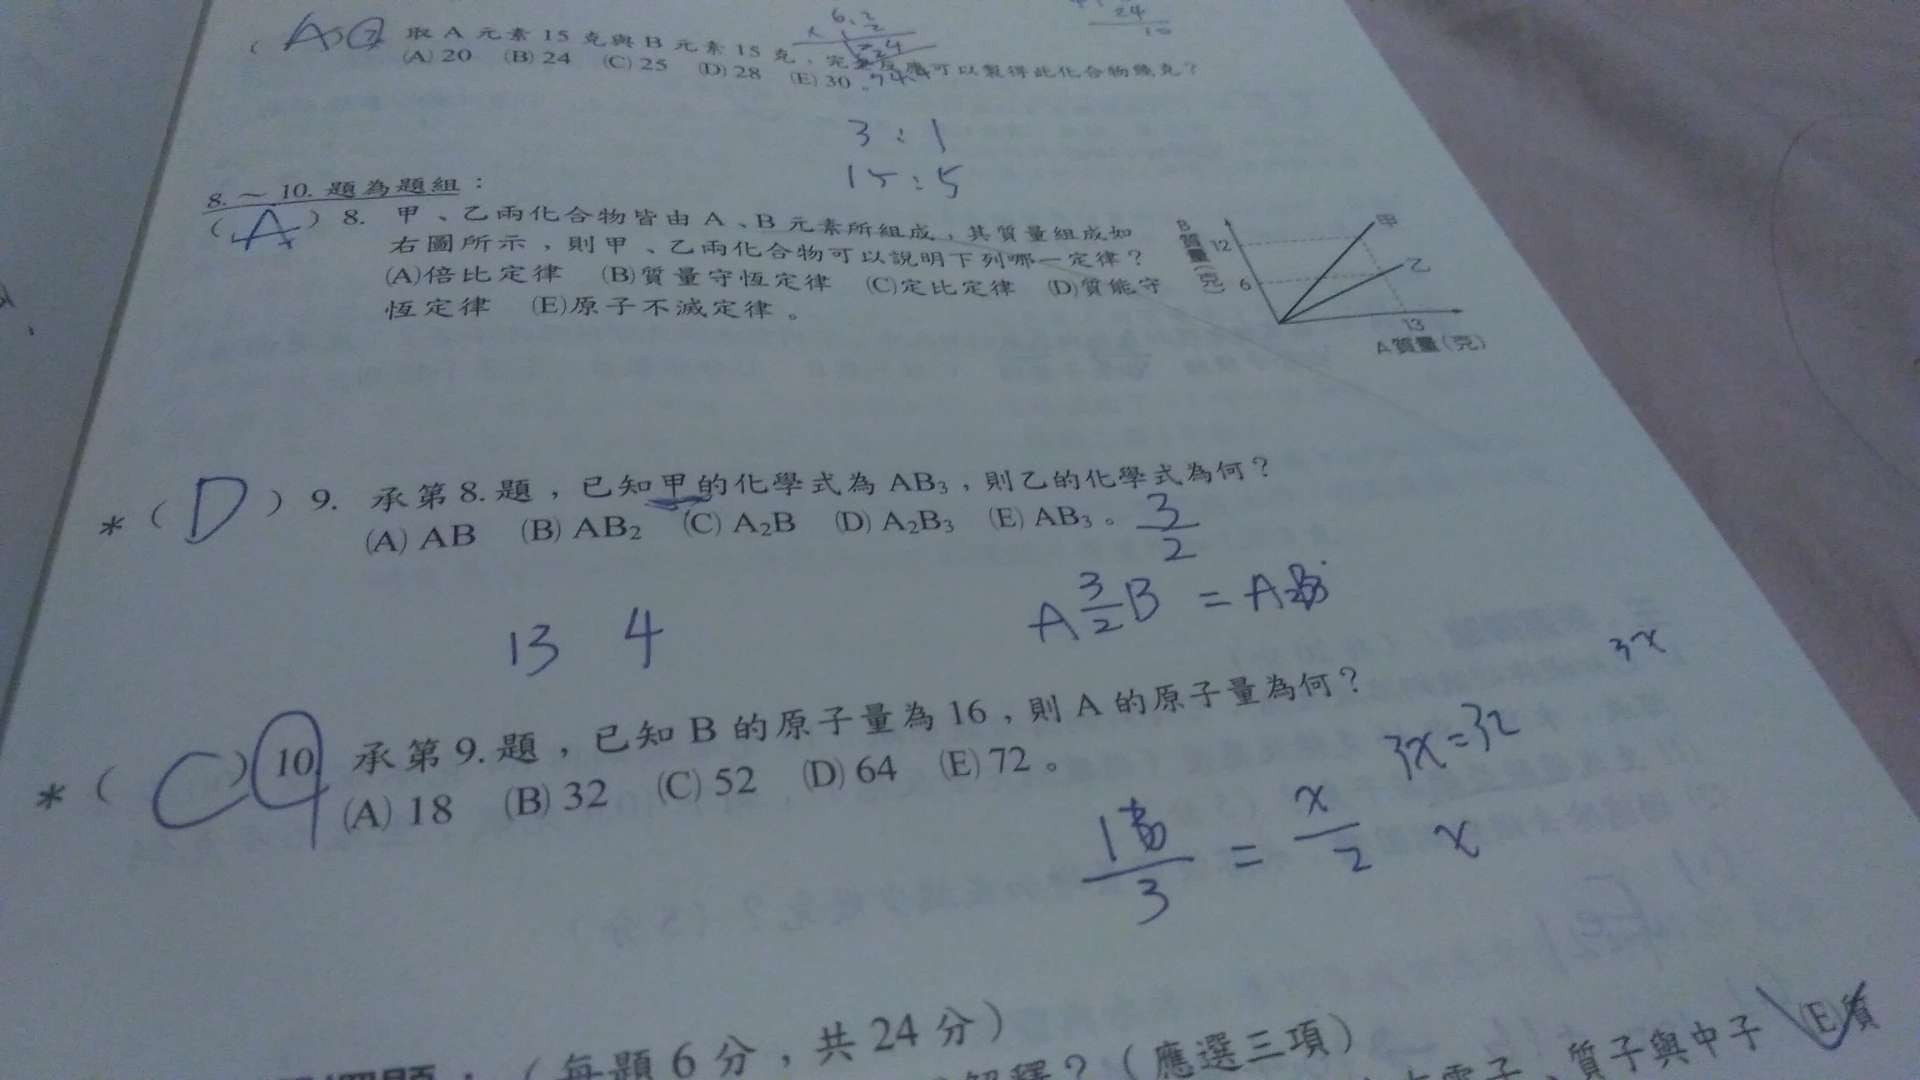 取 A 元素 15 克與 B 元素 15 克，完全反應可以製得此化合物幾克？
(A) 20 (B) 24 (C) 25 (D) 28 (E) 30。
3 : 1
15 : 5
8. ~ 10. 題為題組：
( A ) 8. 甲、乙兩化合物皆由 A、B 元素所組成，其質量組成如
右圖所示，則甲、乙兩化合物可以說明下列哪一定律？
(A)倍比定律 (B)質量守恆定律 (C)定比定律 (D)質能守
恆定律 (E)原子不滅定律。
B質量(克)
12
6
甲
乙
13
A 質量(克)
* ( D ) 9. 承第 8. 題，已知甲的化學式為 AB₃，則乙的化學式為何？
(A) AB (B) AB₂ (C) A₂B (D) A₂B₃ (E) AB₃。
3/2
13 4
A 3/2 B =
3x
* ( C ) 10 承第 9. 題，已知 B 的原子量為 16，則 A 的原子量為何？
(A) 18 (B) 32 (C) 52 (D) 64 (E) 72。
3x=32
= x/2 x
3
（每題 6 分，共 24 分）
？（應選三項）
、質子與中子 (E)質